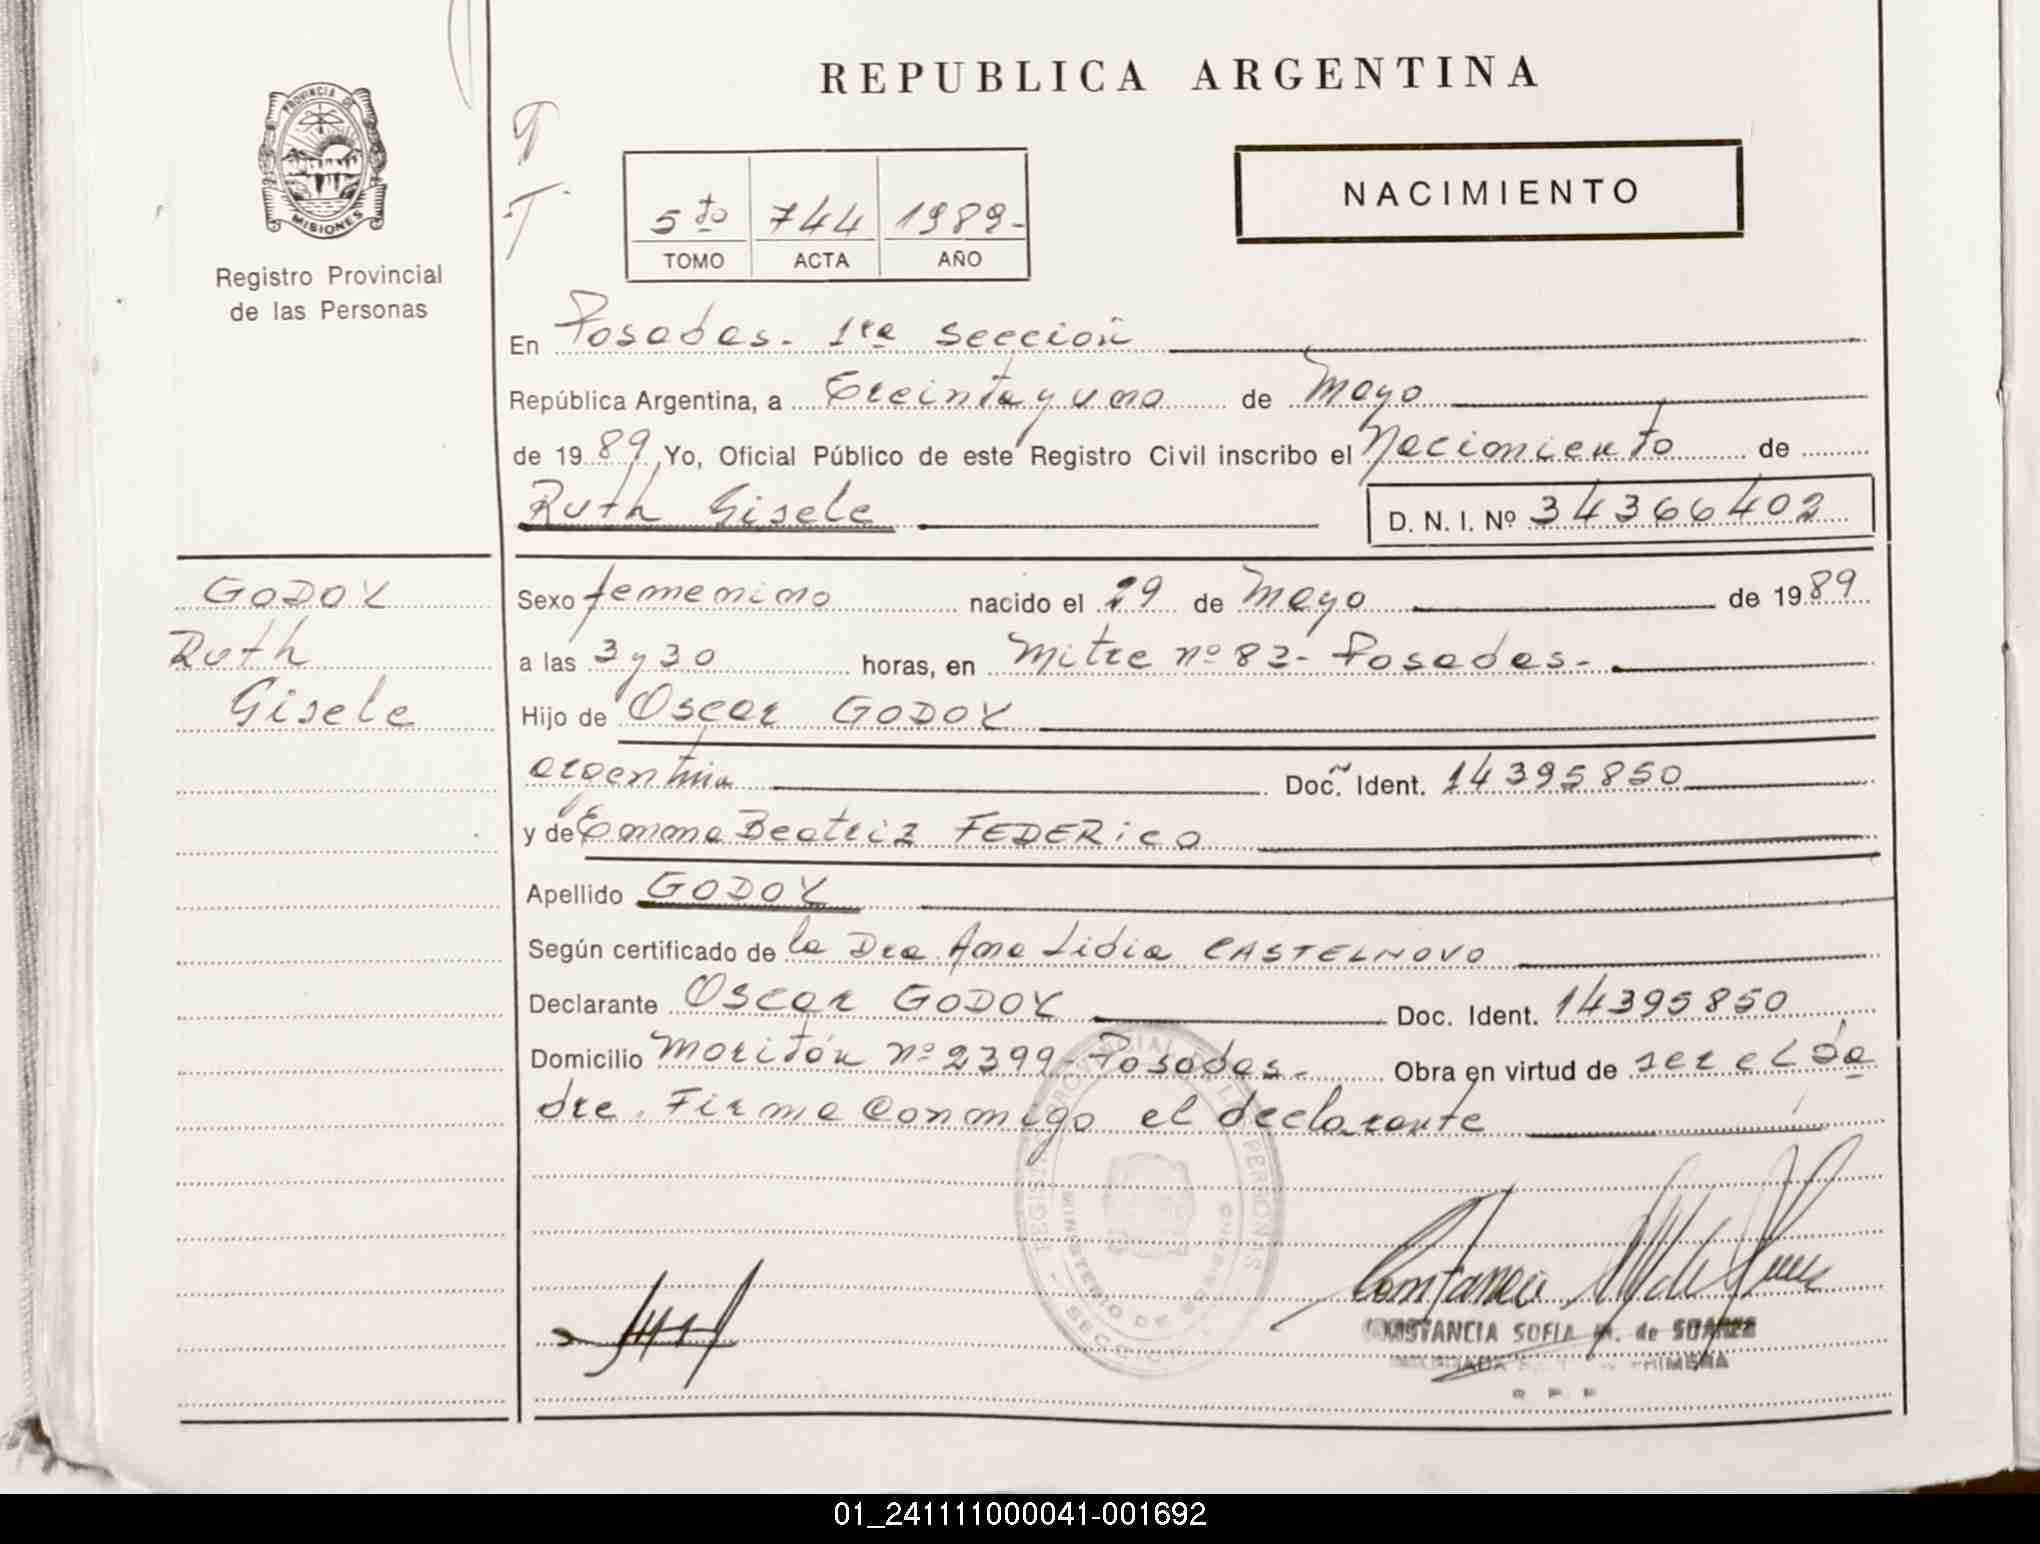 REPUBLICA ARGENTINA
PROVINCIA DE
MISIONES
Registro Provincial
de las Personas
5to 744 1989-
TOMO ACTA AÑO
NACIMIENTO
En Posadas. 1ra Sección
República Argentina, a treinta y uno de Mayo
de 1989 Yo, Oficial Público de este Registro Civil inscribo el Nacimiento de
Ruth Gisele D. N. I. Nº 34366402
GODOY
Ruth
Gisele
Sexo femenino nacido el 29 de Mayo de 1989
a las 3 y 30 horas, en Mitre nº 82- Posadas-
Hijo de Oscar GODOY
argentina Doc. Ident. 14395850
y de Emma Beatriz FEDERICO
Apellido GODOY
Según certificado de la Dra Ana Lidia CASTELNOVO
Declarante Oscar GODOY Doc. Ident. 14395850
Domicilio Moritán nº 2399- Posadas- Obra en virtud de ser el pa
dre. Firma conmigo el declarante
CONSTANCIA SOFIA M. de SUAREZ
PRIMERA
01_241111000041-001692